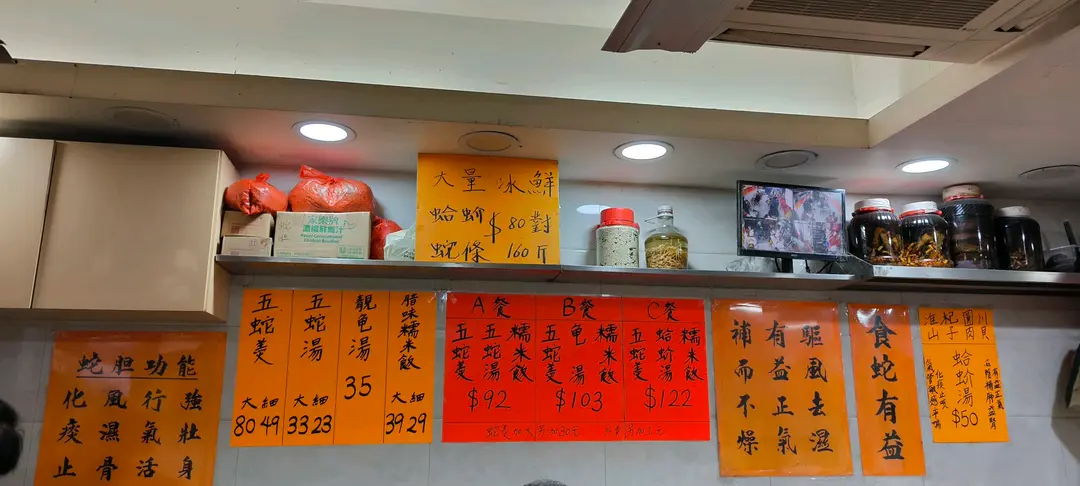 大量冰鮮
蛤蚧 $80對
蛇條 160斤
家樂牌
濃縮鮮雞汁
蛇胆功能
化風行強
痰濕氣壯
止骨活身
五蛇羹
大 細
80 49
五蛇湯
大 細
33 23
靚龟湯
35
腊味糯米飯
大 細
39 29
A餐
五蛇羹
五蛇湯
糯米飯
$92
B餐
五蛇羹
龟湯
糯米飯
$103
C餐
五蛇羹
蛤蚧湯
糯米飯
$122
驅風去濕
有益正氣
補而不燥
食蛇有益
川貝
圓肉
杞子
淮山
蛤蚧湯
$50